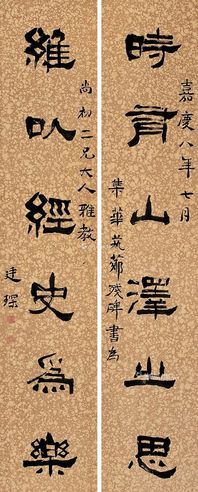 嘉慶八年七月
時有山澤之思
集華殘碑書為
尚初二兄大人雅教
維以經史爲樂
廷琛